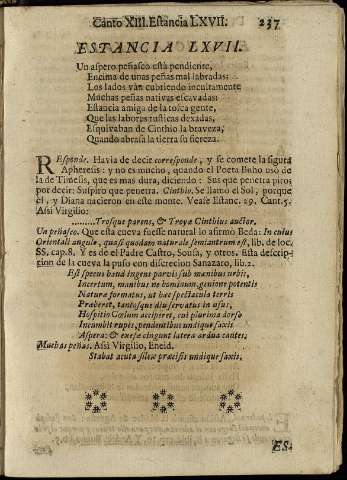 Canto XIII. Estancia LXVII. 237
ESTANCIA LXVII.
Un aspero peñasco està pendiente,
Encima de unas peñas mal labradas:
Los lados vàn cubriendo incultamente
Muchas peñas nativas escavadas:
Estancia amiga de la tosca gente,
Que las labores rusticas dexadas,
Esquivaban de Cinthio la braveza,
Quando abrasa la tierra su fiereza.
REsponde. Havia de decir corresponde, y se comete la figura
Apheresis: y no es mucho, quando el Poeta Bnho uso de
la de Timesis, que es mas dura, diciendo: Sus que penetra piros
por decir: Suspiro que penetra. Cinthio. Se llamò el Sol, porque
el, y Diana nacieron en este monte. Vease Estanc. 29. Cant. 5.
Assi Virgilio:
.........Trosque parens, & Troyæ Cinthius auctor.
Un peñasco. Que esta cueva fuesse natural lo afirmò Beda: In cuius
Orientali angulo, quasi quodam naturale semiantrum est, lib. de loc.
SS. cap. 8. Y es de el Padre Castro, Sousa, y otros. Esta descrip-
cion de la cueva la puso con discrecion Sanazaro, lib. 2.
Est specus haud ingens parvis sub mœnibus urbis,
Incertum, manibus ne hominum, genione potentis
Naturæ formatus, ut hæc spectacula terris
Præberet, tantosque diu servatus in usus,
Hospitio Cœlum acciperet, cui plurima dorso
Incumbit rupis, pendentibus undique saxis,
Aspera: & exesæ cingunt latera ardua cautes.
Muchas peñas. Assi Virgilio, Eneid.
Stabat acuta silex præcisis undique saxis,
ES-